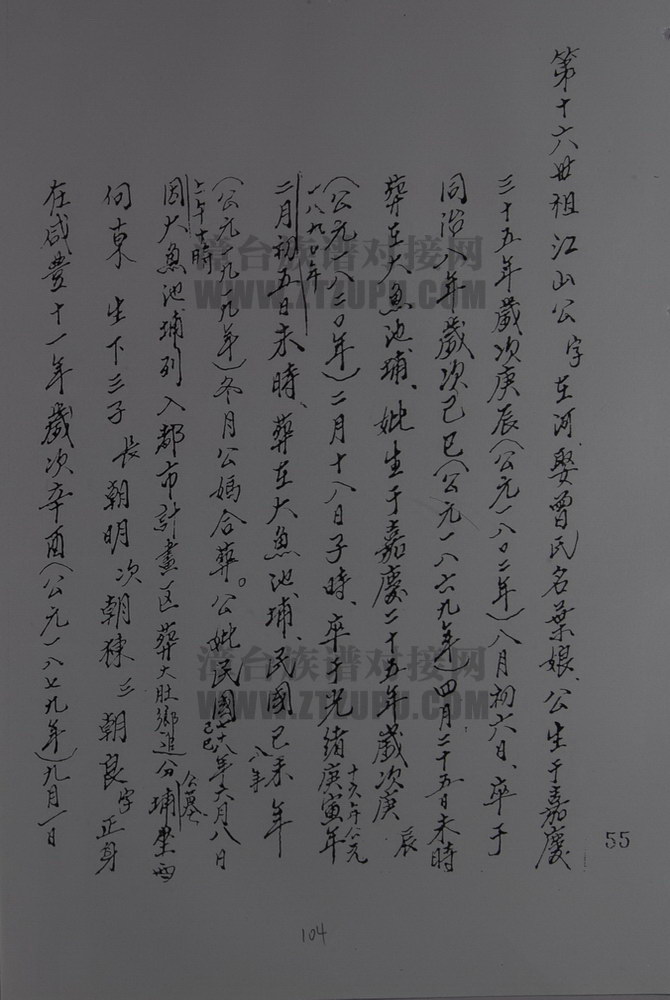 第十六世祖江山公字在河娶曾氏名葉娘、公生于嘉慶
三十五年歲次庚辰(公元一八〇二年)八月初六日、卒于
同治八年歲次己巳(公元一八六九年)四月二十五日未時
葬在大魚池埔、妣生于嘉慶二十五年歲次庚辰
(公元一八二〇年)二月十八日子時、卒于光緒庚寅年
十六年公元
一八九〇年
二月初五日未時、葬在大魚池埔、民國己未年
八年
(公元一九一九年)冬月公媽合葬。公妣民國七十八年六月八日
己巳
上午十時
因大魚池埔列入都市計畫区葬大肚鄉追分埔坐西
公墓
向東 生下三子 長朝明 次朝棟 三朝良字正身
在咸豊十一年歲次辛酉(公元一八七九年)九月一日
55
104
潽台族谱对接网
WWW.ZTZUPU.COM
潽台族谱对接网
WWW.ZTZUPU.COM